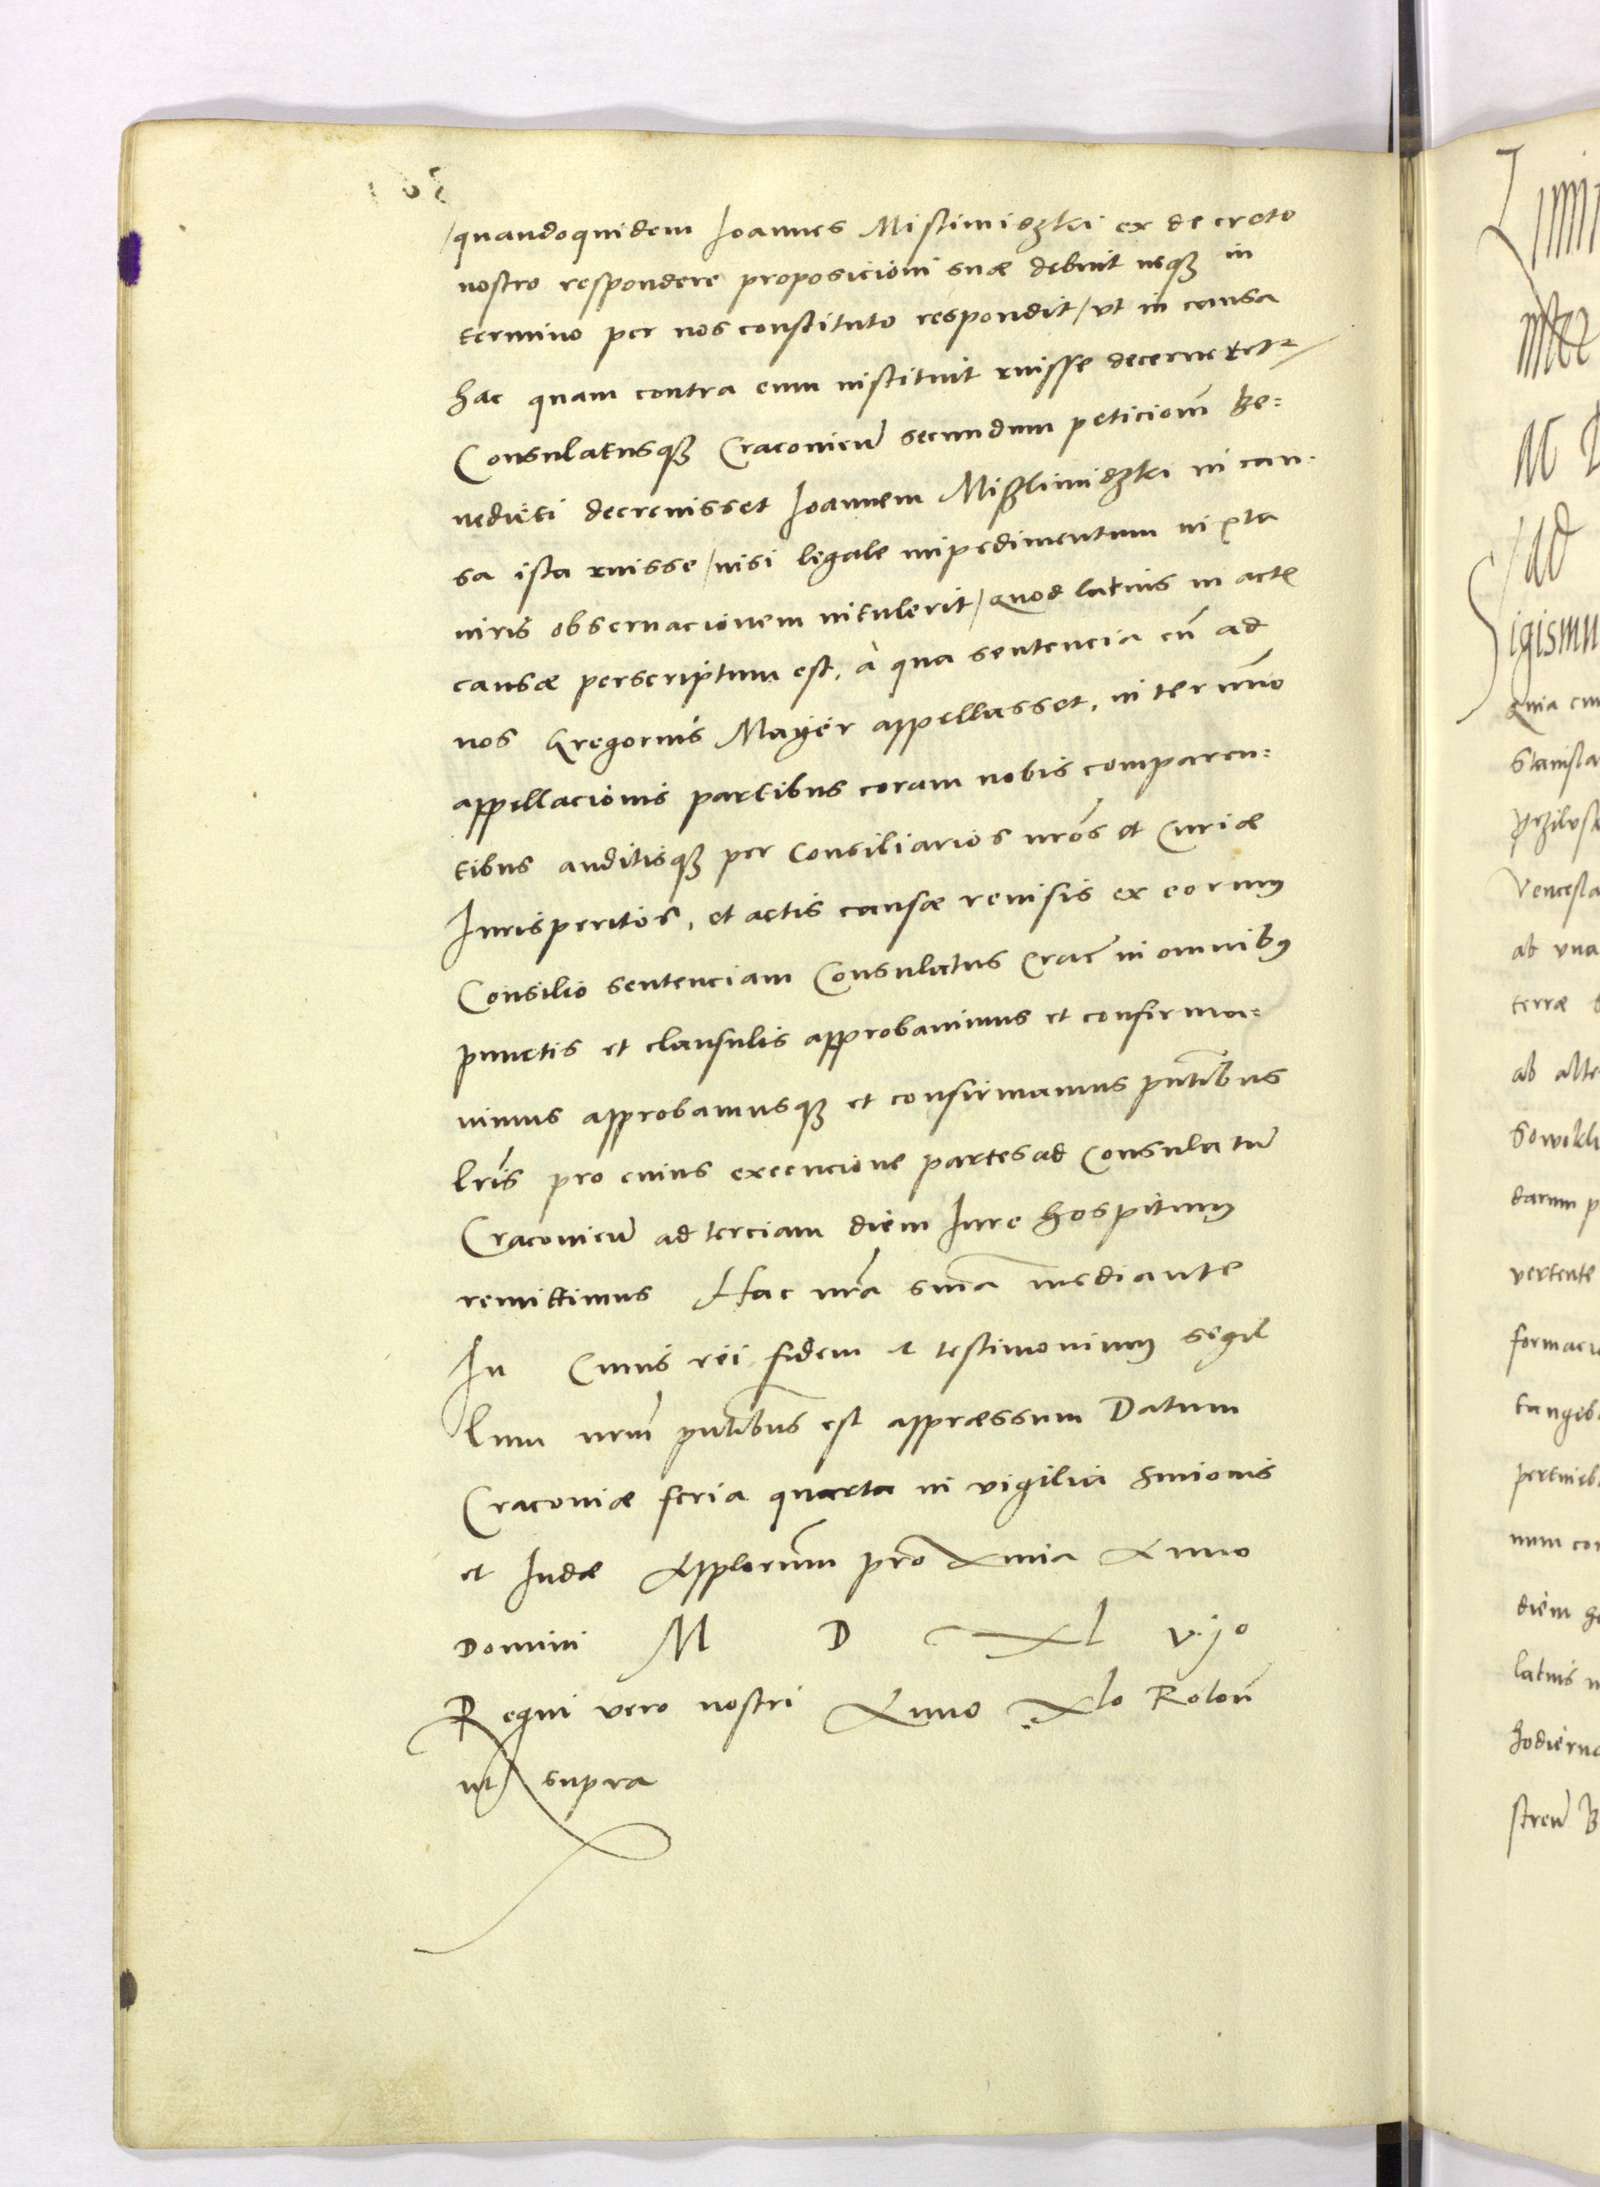 quandoquidem Ioannes Mistimidzki ex decreto
nostro respondere proposicioni suæ debuit neqꝫ in
termino per nos constituto respondit / vt in causa
hac quam contra eum instituit ruisse decerneret͛ /
Consulatusqꝫ Cracovien̄ secundum peticiom̄ Be=
nedicti decrevisset Ioannem Mißlimidzki in cau-
sa ista ruisse / nisi legale impedimentum iuxta
iuris observacionem intulerit / quod latius in actꝭ
causæ perscriptum est. à qua sentencia cū ad
nos Gregorius Mayer appellasset, in termīo
appellacionis partibus coram nobis comparen=
tibus auditisqꝫ per Consiliarios nr̄os et Curiæ
Iurisperitos, et actis causæ revisis ex eorum
Consilio sentenciam Consulatus Crac̄ in omnibꝰ
punctis et clausulis approbavimus et confirma=
vimus approbamusqꝫ et confirmamus pn̄tibus
lr̄is pro cuius execucione partes ad Consulatū
Cracovien̄ ad terciam diem Iure hospitum
remittimus Hac nr̄a sn̄ia mediante
In Cuius rei fidem et testimonium sigil
lum nrm̄ pn̄tibus est appræssum Datum
Cracoviæ feria quarta in vigilia Simonis
et Iudæ Applorum̄ proxima Anno
Domini M D XL vijo
Regni vero nostri Anno xlo Rōlon̄
ut supra
Sigismu
Quia cum
ab vna
terræ
ab alte
darum p
vertente
tangeb
num con
diem h
latius
hodierna